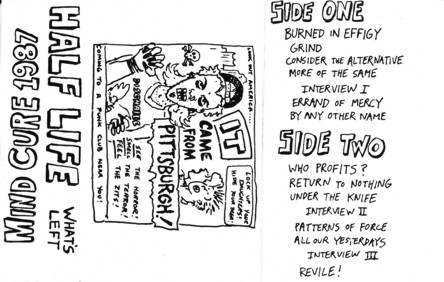 MIND CURE 1987
HALF LIFE
WHAT'S
LEFT
LOOK OUT AMERICA....
IT
CAME
FROM
PITTSBURGH!
LOCK UP YOUR
DAUGHTERS!
HIDE YOUR BEER!
SEE THE HORROR!
SMELL THE TERROR!
FEEL THE ZITS!
COMING TO A PUNK CLUB NEAR YOU!
SIDE ONE
BURNED IN EFFIGY
GRIND
CONSIDER THE ALTERNATIVE
MORE OF THE SAME
INTERVIEW I
ERRAND OF MERCY
BY ANY OTHER NAME
SIDE TWO
WHO PROFITS?
RETURN TO NOTHING
UNDER THE KNIFE
INTERVIEW II
PATTERNS OF FORCE
ALL OUR YESTERDAYS
INTERVIEW III
REVILE!